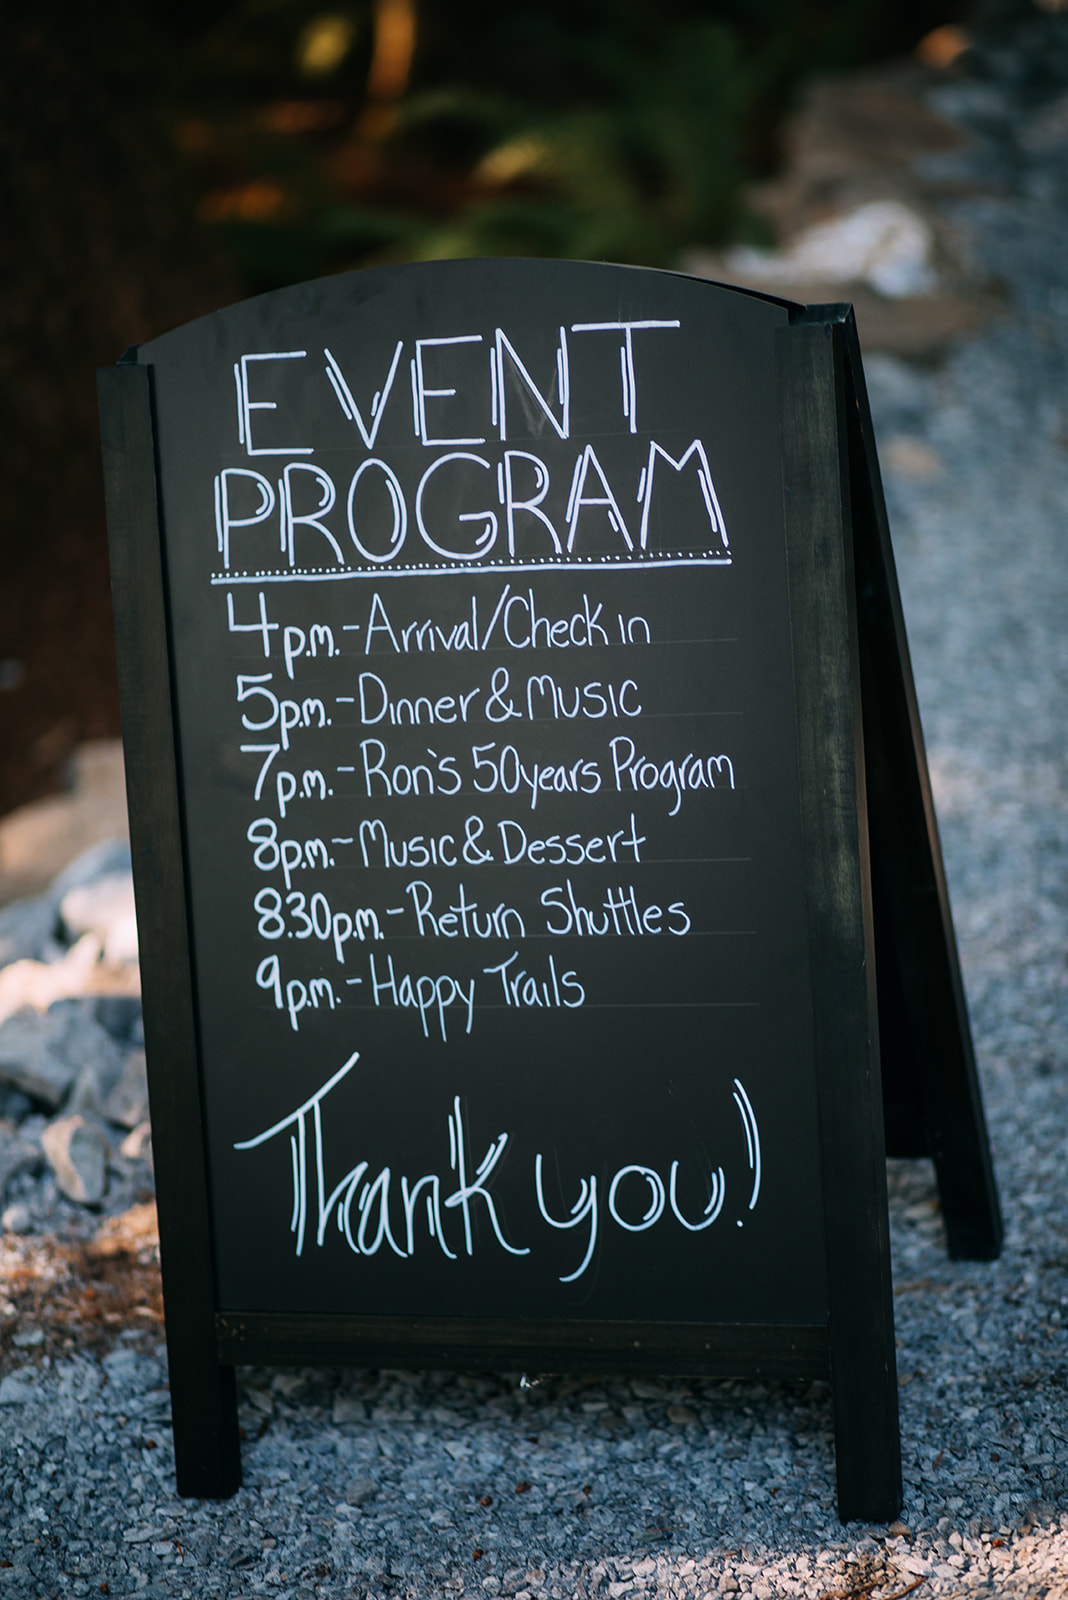 EVENT
PROGRAM
4p.m. - Arrival/Check in
5p.m. - Dinner & Music
7p.m. - Ron's 50years Program
8p.m. - Music & Dessert
8:30p.m. - Return Shuttles
9p.m. - Happy Trails
Thank you!